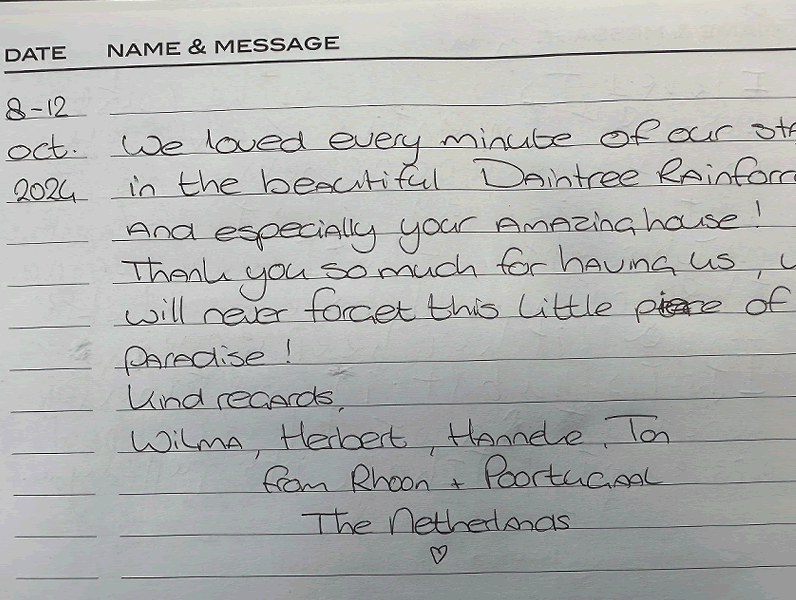 DATE NAME & MESSAGE
8-12
oct. We loved every minute of our sta
2024 in the beautiful Daintree Rainforr
And especially your Amazing house!
Thank you so much for having us,
will never forget this little piece of
paradise!
Kind regards,
Wilma, Herbert, Hanneke, Ton
from Rhoon + Poortugaal
The Netherlands
♡